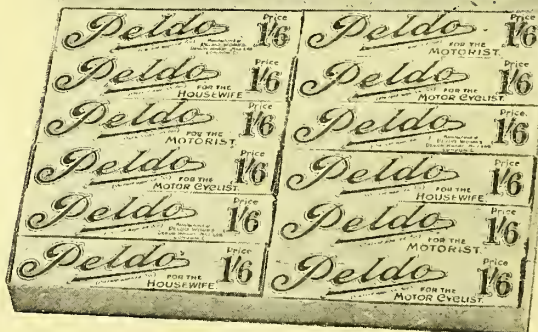 Peldo Price 1/6
Peldo FOR THE HOUSEWIFE Price 1/6
Peldo FOR THE MOTORIST. Price 1/6
Peldo FOR THE MOTOR CYCLIST. Price 1/6
Peldo Price 1/6
Peldo FOR THE HOUSEWIFE Price 1/6
Peldo FOR THE MOTORIST. Price 1/6
Peldo FOR THE MOTOR CYCLIST. Price 1/6
Peldo Price. 1/6
Peldo FOR THE HOUSEWIFE. Price 1/6
Peldo FOR THE MOTORIST. Price 1/6
Peldo FOR THE MOTOR CYCLIST. Price 1/6